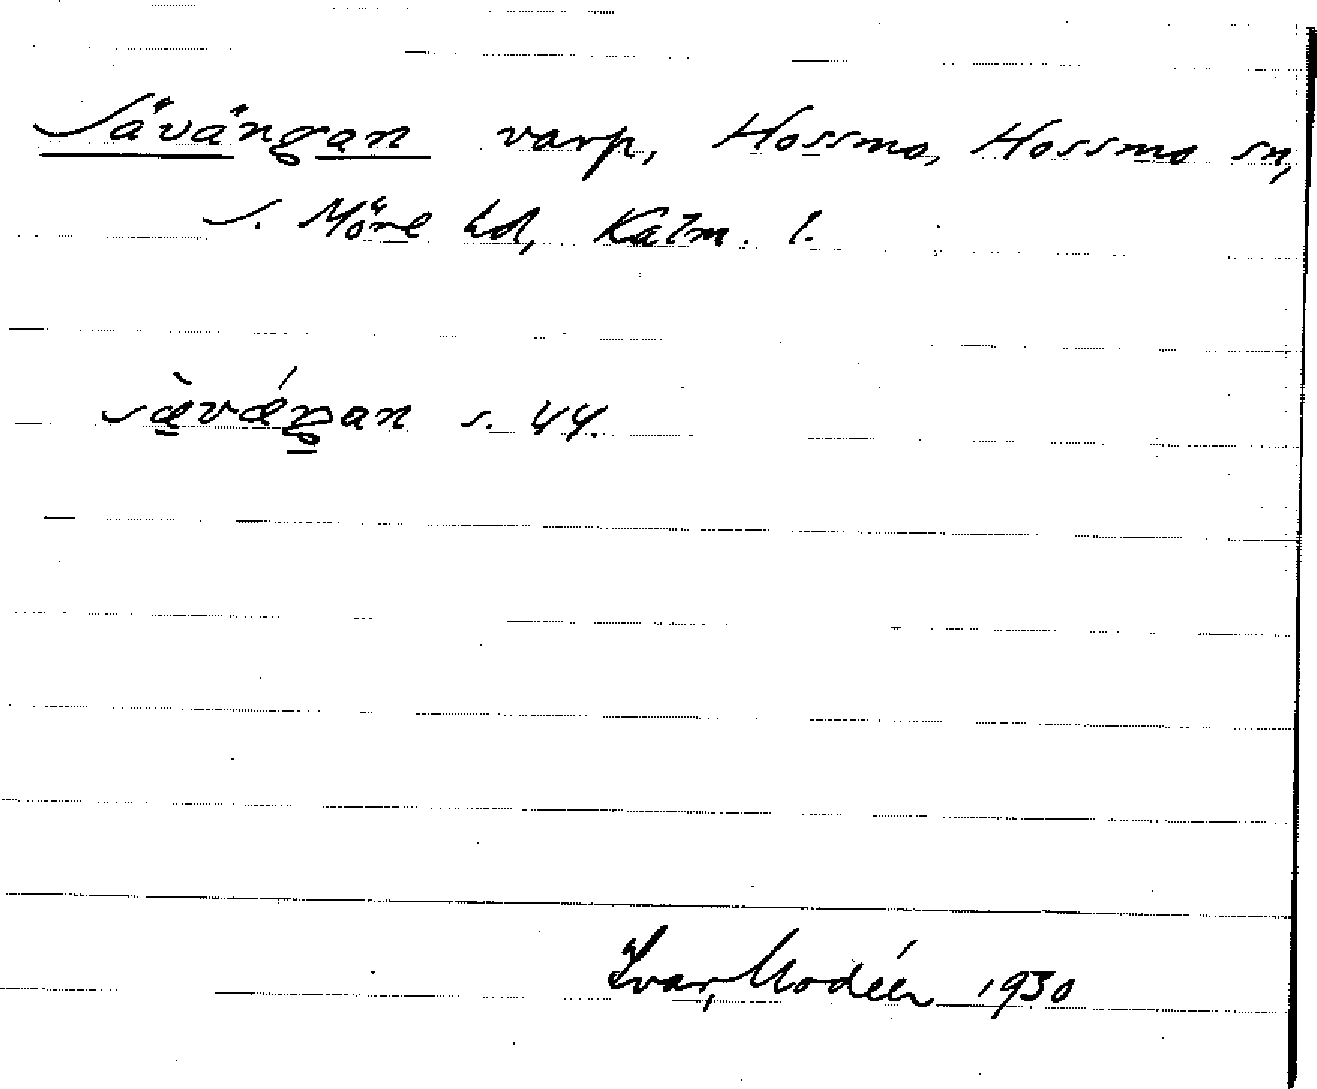 Sävängan varp, Hossmo, Hossmo sn,
S. Möre hd, Kalm. l.
sæ̀vǽŋan s. 44.
Ivar Modéer 1930